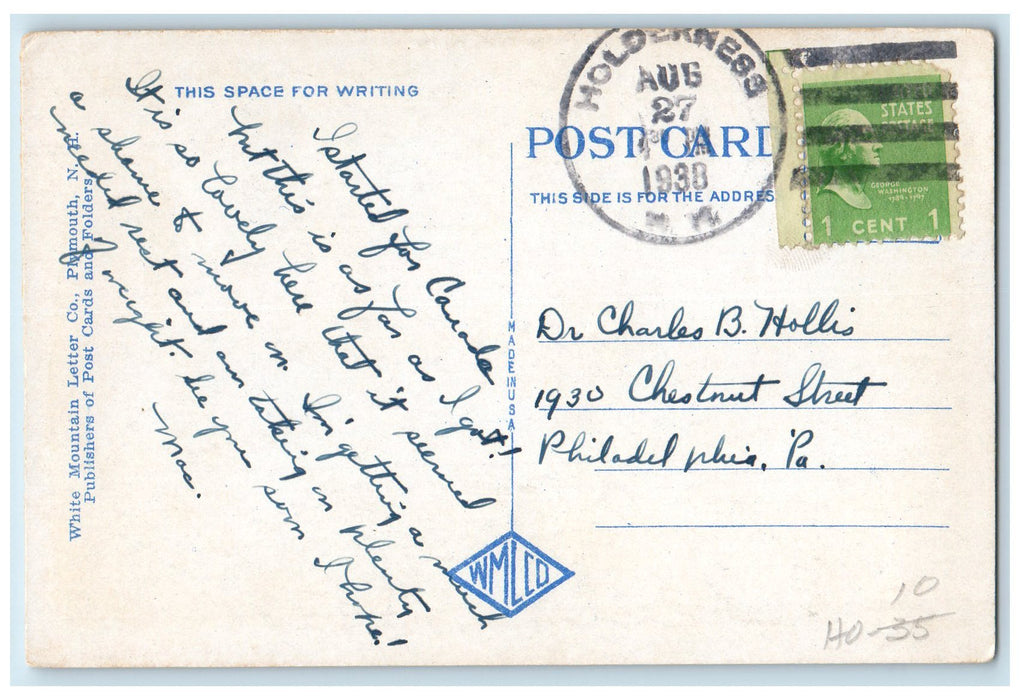 THIS SPACE FOR WRITING
I started for Canada
but this is as far as I got!
It is so lovely here that it seemed
a shame to move on. I'm getting a much
needed rest and am taking on plenty
of weight. See you soon I hope!
Mac.
White Mountain Letter Co., Plymouth, N. H.
Publishers of Post Cards and Folders
POST CARD
THIS SIDE IS FOR THE ADDRES
HOLDERNESS
AUG
27
PM
1938
STATES
POSTAGE
GEORGE
WASHINGTON
1789-1797
1 CENT 1
MADE IN USA
Dr Charles B. Hollis
1930 Chestnut Street
Philadelphia, Pa.
WMLCO
10
HO-35